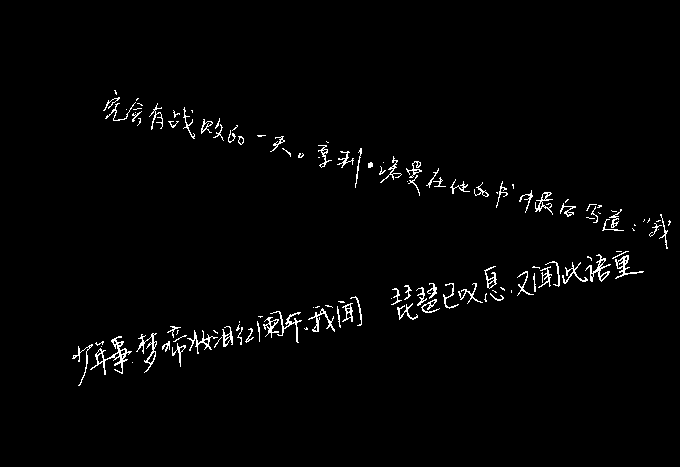 究会有战败的一天。亨利·诺曼在他的书中最后写道:“我
少年事,梦啼妆泪红阑干。我闻琵琶已叹息,又闻此语重